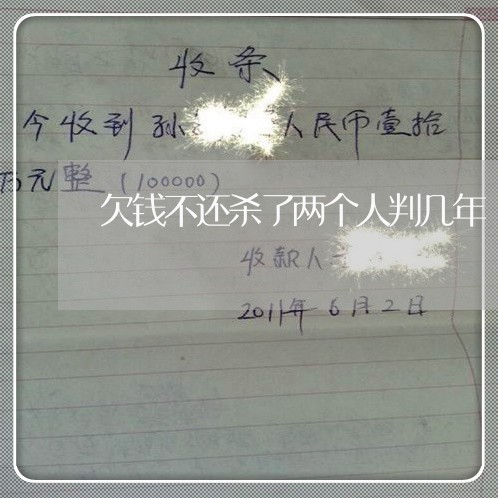 收条
今收到孙 人民币壹拾
万元整（100000）
欠钱不还杀了两个人判几年
收款人
2011年6月2日